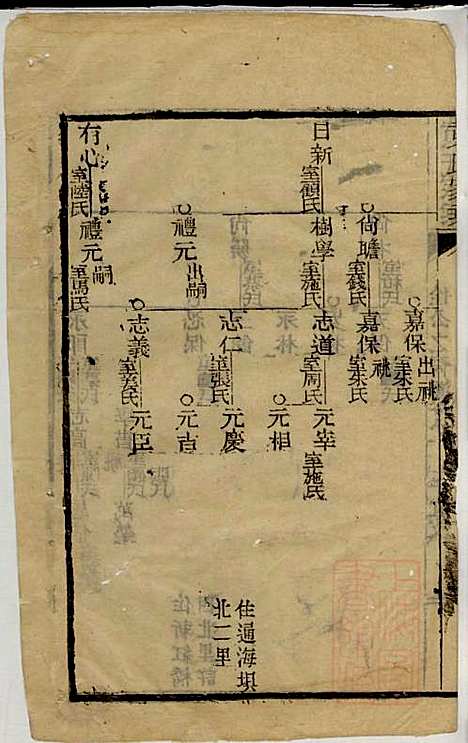 嘉保 出祧
室朱氏
尚瞻
室錢氏
嘉保
室朱氏
日新
室顧氏
樹學
室施氏
志道
室周氏
元宰
室施氏
元相
禮元 出嗣
志仁
室張氏
元慶
元吉
有心
室陸氏
禮元 嗣
室馬氏
志義
室姜氏
元臣
住通海垻
北二里